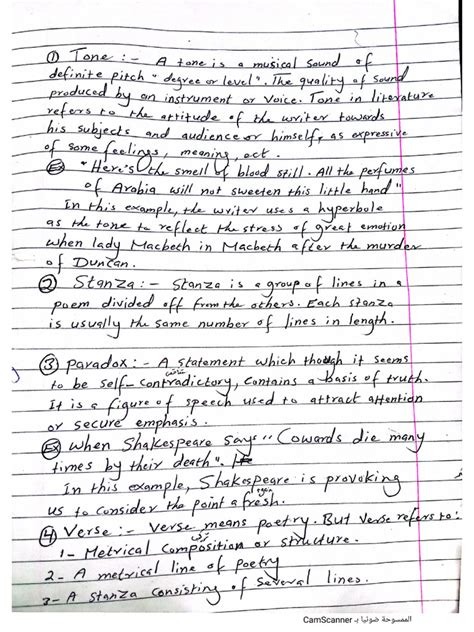 ① Tone :- A tone is a musical sound of
definite pitch "degree or level". The quality of sound
produced by an instrument or voice. Tone in literature
refers to the attitude of the writer towards
his subjects and audience or himself, as expressive
of some feelings, meaning, act.
Ex "Here's the smell of blood still. All the perfumes
of Arabia will not sweeten this little hand"
In this example, the writer uses a hyperbole
as the tone to reflect the stress of great emotion
when lady Macbeth in Macbeth after the murder
of Duncan.
② Stanza :- Stanza is a group of lines in a
poem divided off from the others. Each stanza
is usually the same number of lines in length.
③ paradox :- A statement which though it seems
to be self-contradictory, contains a basis of truth.
It is a figure of speech used to attract attention
or secure emphasis.
Ex When Shakespeare says "Cowards die many
times by their death".
In this example, Shakespeare is provoking
us to consider the point afresh.
④ Verse :- Verse means poetry. But Verse refers to:
1- Metrical Composition or structure.
2- A metrical line of poetry
3- A stanza consisting of several lines.
الممسوحة ضوئيا بـ CamScanner